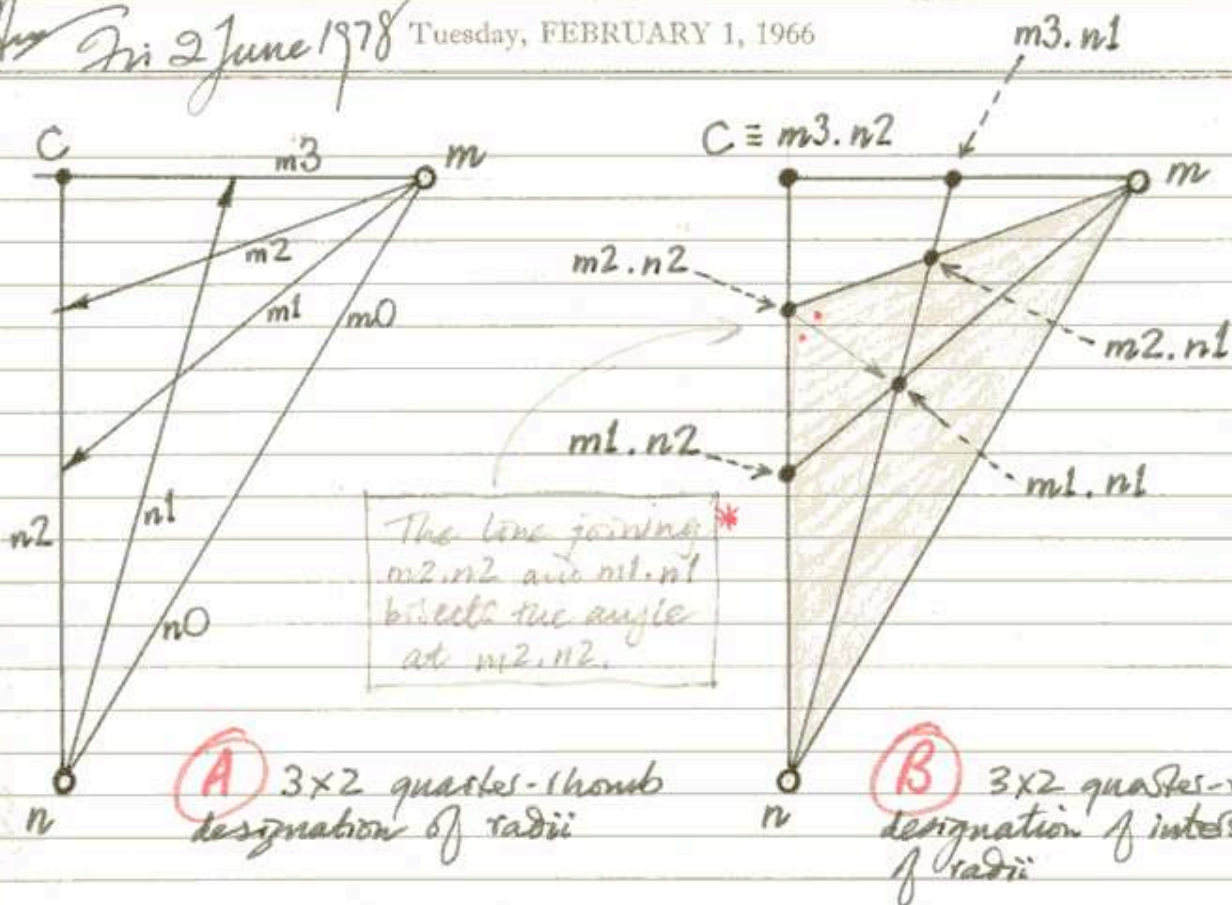 Fri 2 June 1978 Tuesday, FEBRUARY 1, 1966
C
m3
m
m2
m1
m0
n2
n1
n0
n
A 3×2 quarter-rhomb
designation of radii
m3.n1
C ≡ m3.n2
m
m2.n2
m2.n1
m1.n2
m1.n1
The line joining *
m2.n2 and m1.n1
bisects the angle
at m2.n2.
n
B 3×2 quarter-
designation of
of radii